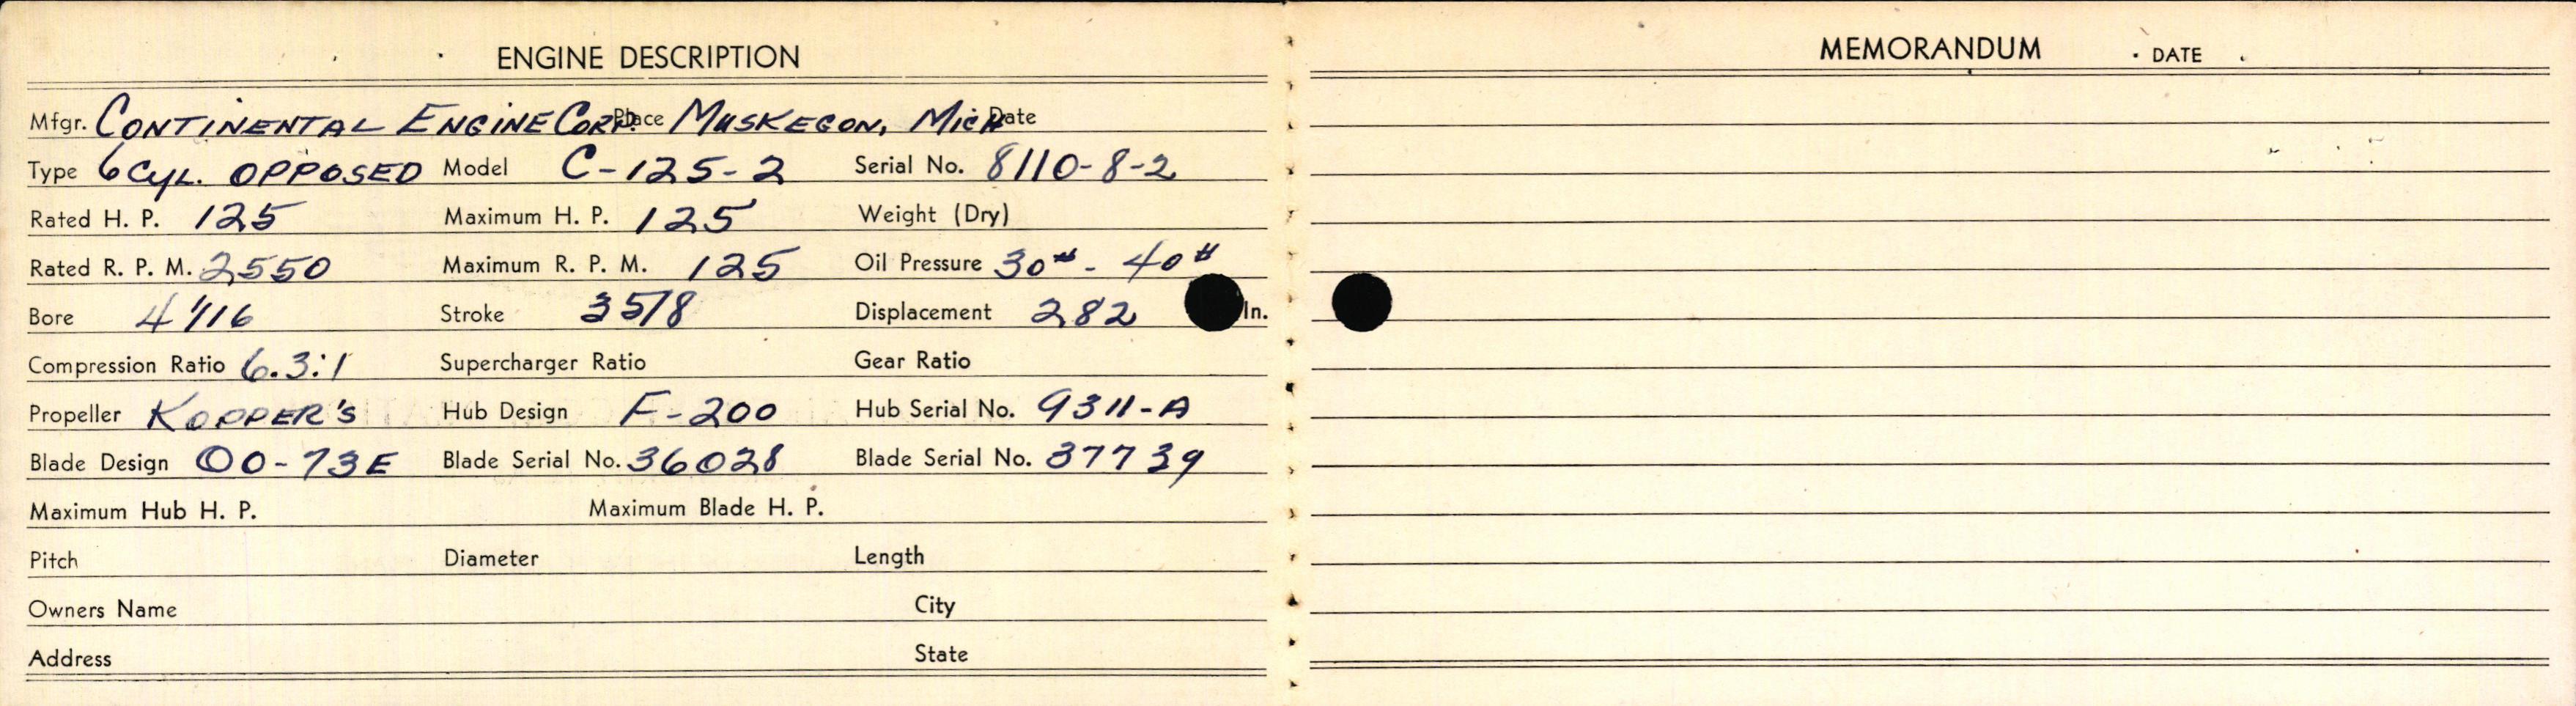 ENGINE DESCRIPTION
Mfgr. CONTINENTAL ENGINE CORP. Place MUSKEGON, MICH Date
Type 6 CYL. OPPOSED Model C-125-2 Serial No. 8110-8-2
Rated H. P. 125 Maximum H. P. 125 Weight (Dry)
Rated R. P. M. 2550 Maximum R. P. M. 125 Oil Pressure 30# - 40#
Bore 4 1/16 Stroke 3 5/8 Displacement 282 In.
Compression Ratio 6.3:1 Supercharger Ratio Gear Ratio
Propeller KOPPER'S Hub Design F-200 Hub Serial No. 9311-A
Blade Design 00-73E Blade Serial No. 36028 Blade Serial No. 37739
Maximum Hub H. P. Maximum Blade H. P.
Pitch Diameter Length
Owners Name City
Address State
MEMORANDUM DATE